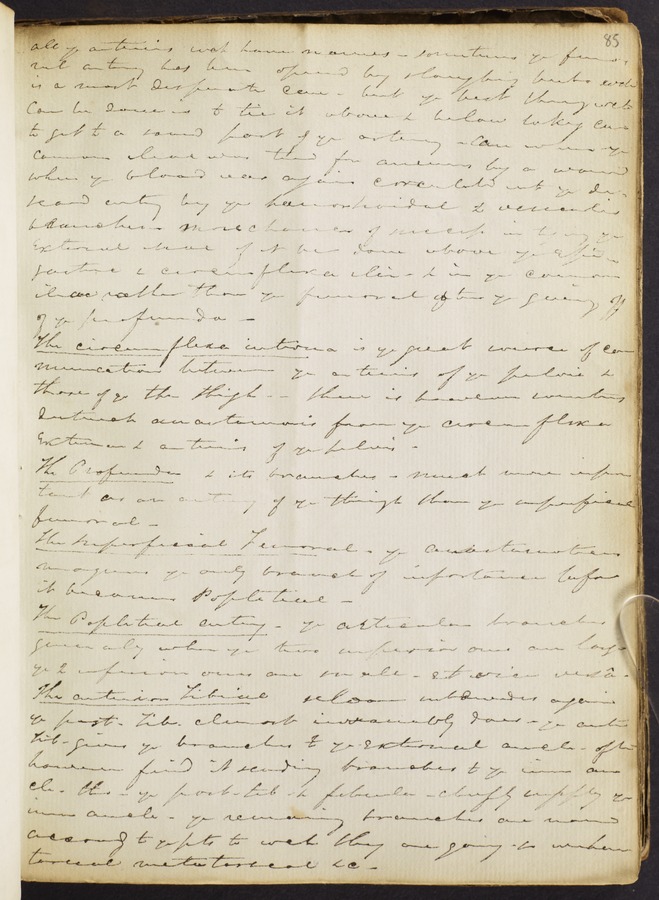 85
all ye arteries wch have names - sometimes ye femo-
ral artery has been opened by sloughing bubo wch
is a most desperate case - but ye best thing wch
can be done is to tie it above & below taking care
to get to a sound part of ye artery - Case when ye
common iliac was tied for aneurism by a wound
when ye blood was again circulated into ye di-
seased artery by ye hemorrhoidal & vesicular
branches - more chance of success in tying ye
External iliac if it be done above ye Epi-
gastric & circumflexa ilii - & in ye common
iliac rather than ye femoral after ye giving off
of ye profunda -
The circumflexa interna is ye great source of com
munication between ye arteries of ye pelvis &
those of ye the thigh - there is however sometimes
distinct anastomosis from ye circumflexa
Externa & arteries of ye pelvis -
The Profunda & its branches - much more impor
tant as an artery of ye thigh than ye superficial
femoral -
The Superficial Femoral - ye anastomotica
magnus ye only branch of importance before
it becomes Popliteal -
The Popliteal artery - ye articular branches
generally when ye two superior ones are large
ye 2 inferior ones are small - et vice versâ -
The anterior Tibial seldom again
ye post. Tib. almost invariably does - ye anter
tib - gives ye branches to ye External ancle - often
however find it sending branches to ye inner an
cle - the - ye post - tib & fibular - chiefly supply ye
inner ancle - ye remaining branches are named
according to ye pts to wch they are going - as
tarsal metatarsal &c -